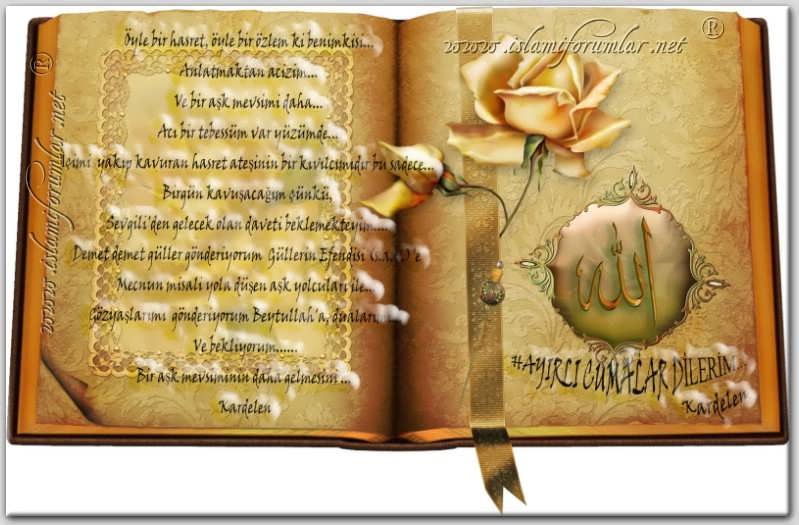 Öyle bir hasret, öyle bir özlem ki benimkisi...
Anlatmaktan acizim...
Ve bir aşk mevsimi daha...
Acı bir tebessüm var yüzümde...
içimi yakıp kavuran hasret ateşinin bir kıvılcımıdır bu sadece...
Birgün kavuşacağım çünkü,
Sevgili'den gelecek olan daveti beklemekteyim....
Demet demet güller gönderiyorum Güllerin Efendisi (s.a.v)'e
Mecnun misali yola düşen aşk yolcuları ile...
Gözyaşlarımı gönderiyorum Beytullah'a, dualarım...
Ve bekliyorum......
Bir aşk mevsiminin daha gelmesini...
Kardelen
www.islamiforumlar.net
®
www.islamiforumlar.net
®
الله
HAYIRLI CUMALAR DİLERİM...
Kardelen